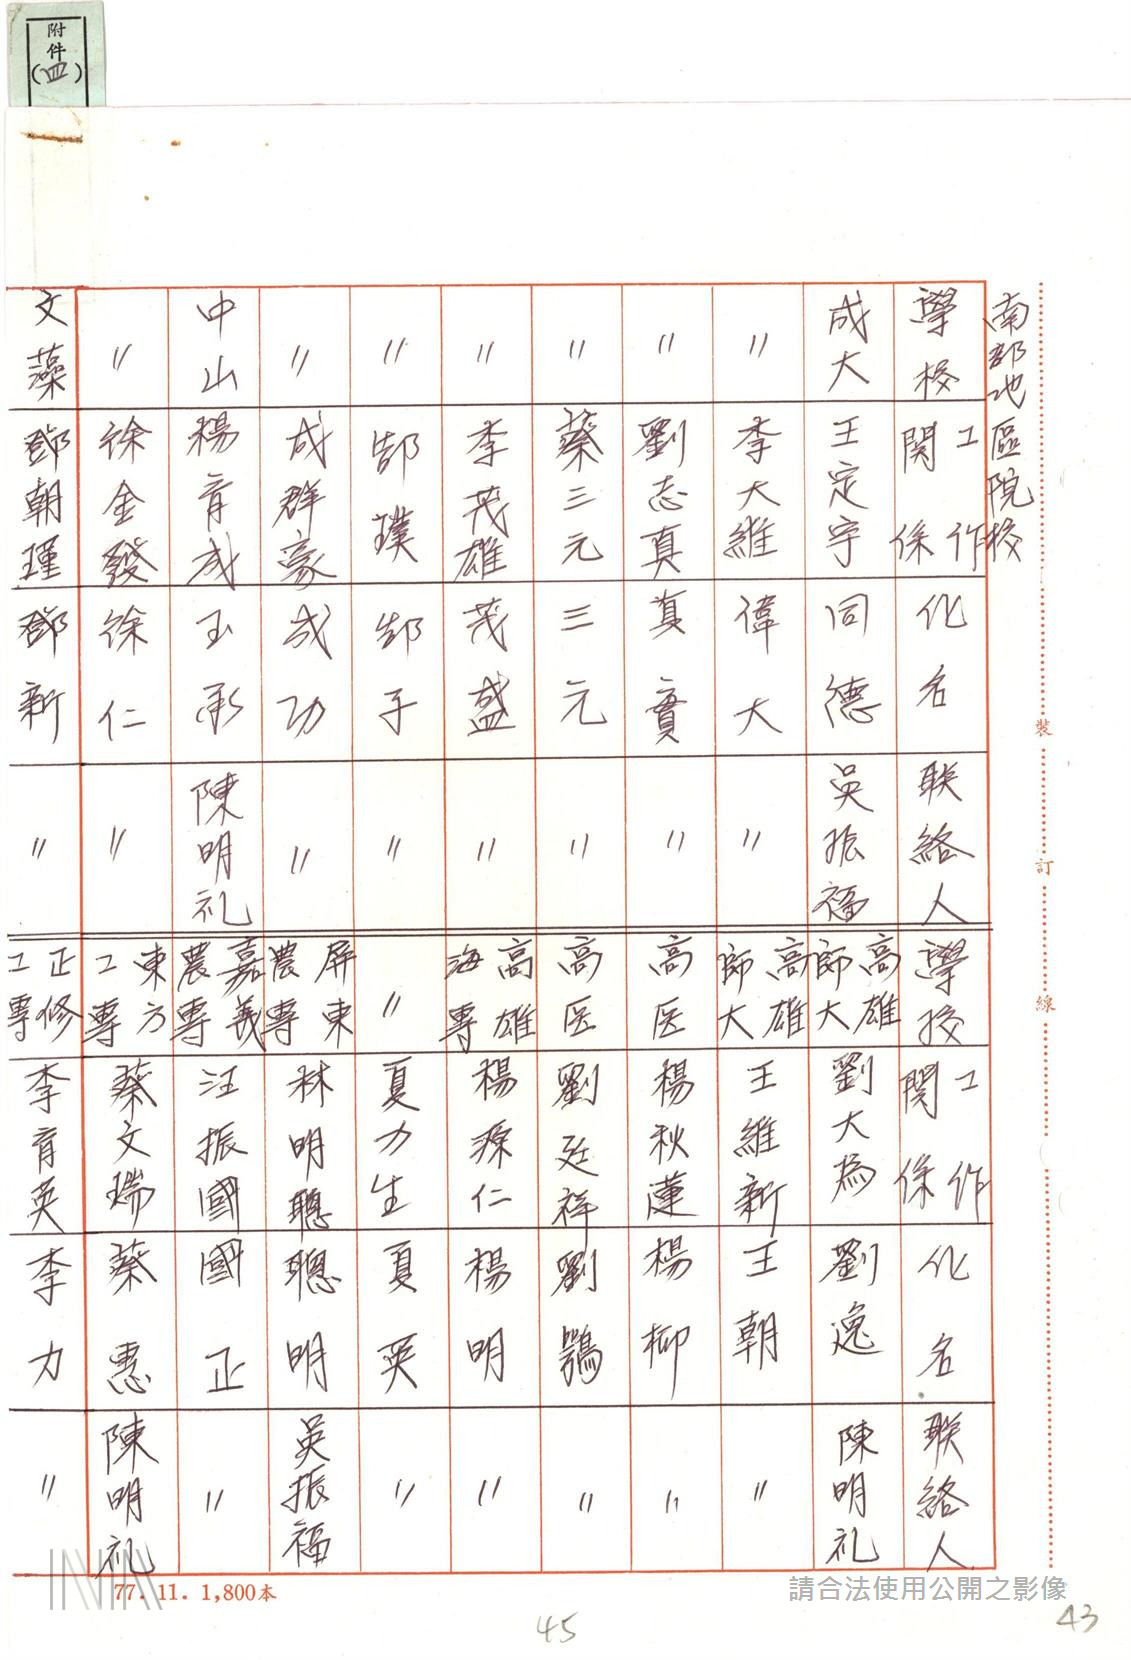 附件(四)
南部地區院校
學校 工作関係 化名 联絡人 學校 工作関係 化名 联絡人
成大 王定宇 同德 吳振福 高雄師大 劉大為 劉逸 陳明礼
〃 李大維 偉大 〃 高雄師大 王維新 王朝 〃
〃 劉志真 真實 〃 高医 楊秋蓮 楊柳 〃
〃 蔡三元 三元 〃 高医 劉廷祥 劉鶚 〃
〃 李茂雄 茂盛 〃 高雄海專 楊源仁 楊明 〃
〃 郜璞 郜子 〃 〃 夏力生 夏英 〃
〃 成群豪 成功 〃 屏東農專 林明聰 聰明 吳振福
中山 楊育成 玉承 陳明礼 嘉義農專 汪振國 國正 〃
〃 徐金發 徐仁 〃 東方工專 蔡文瑞 蔡惠 陳明礼
文藻 鄧朝瑾 鄧新 〃 正修工專 李育英 李力 〃
裝
訂
線
77. 11. 1,800本
請合法使用公開之影像
45
43